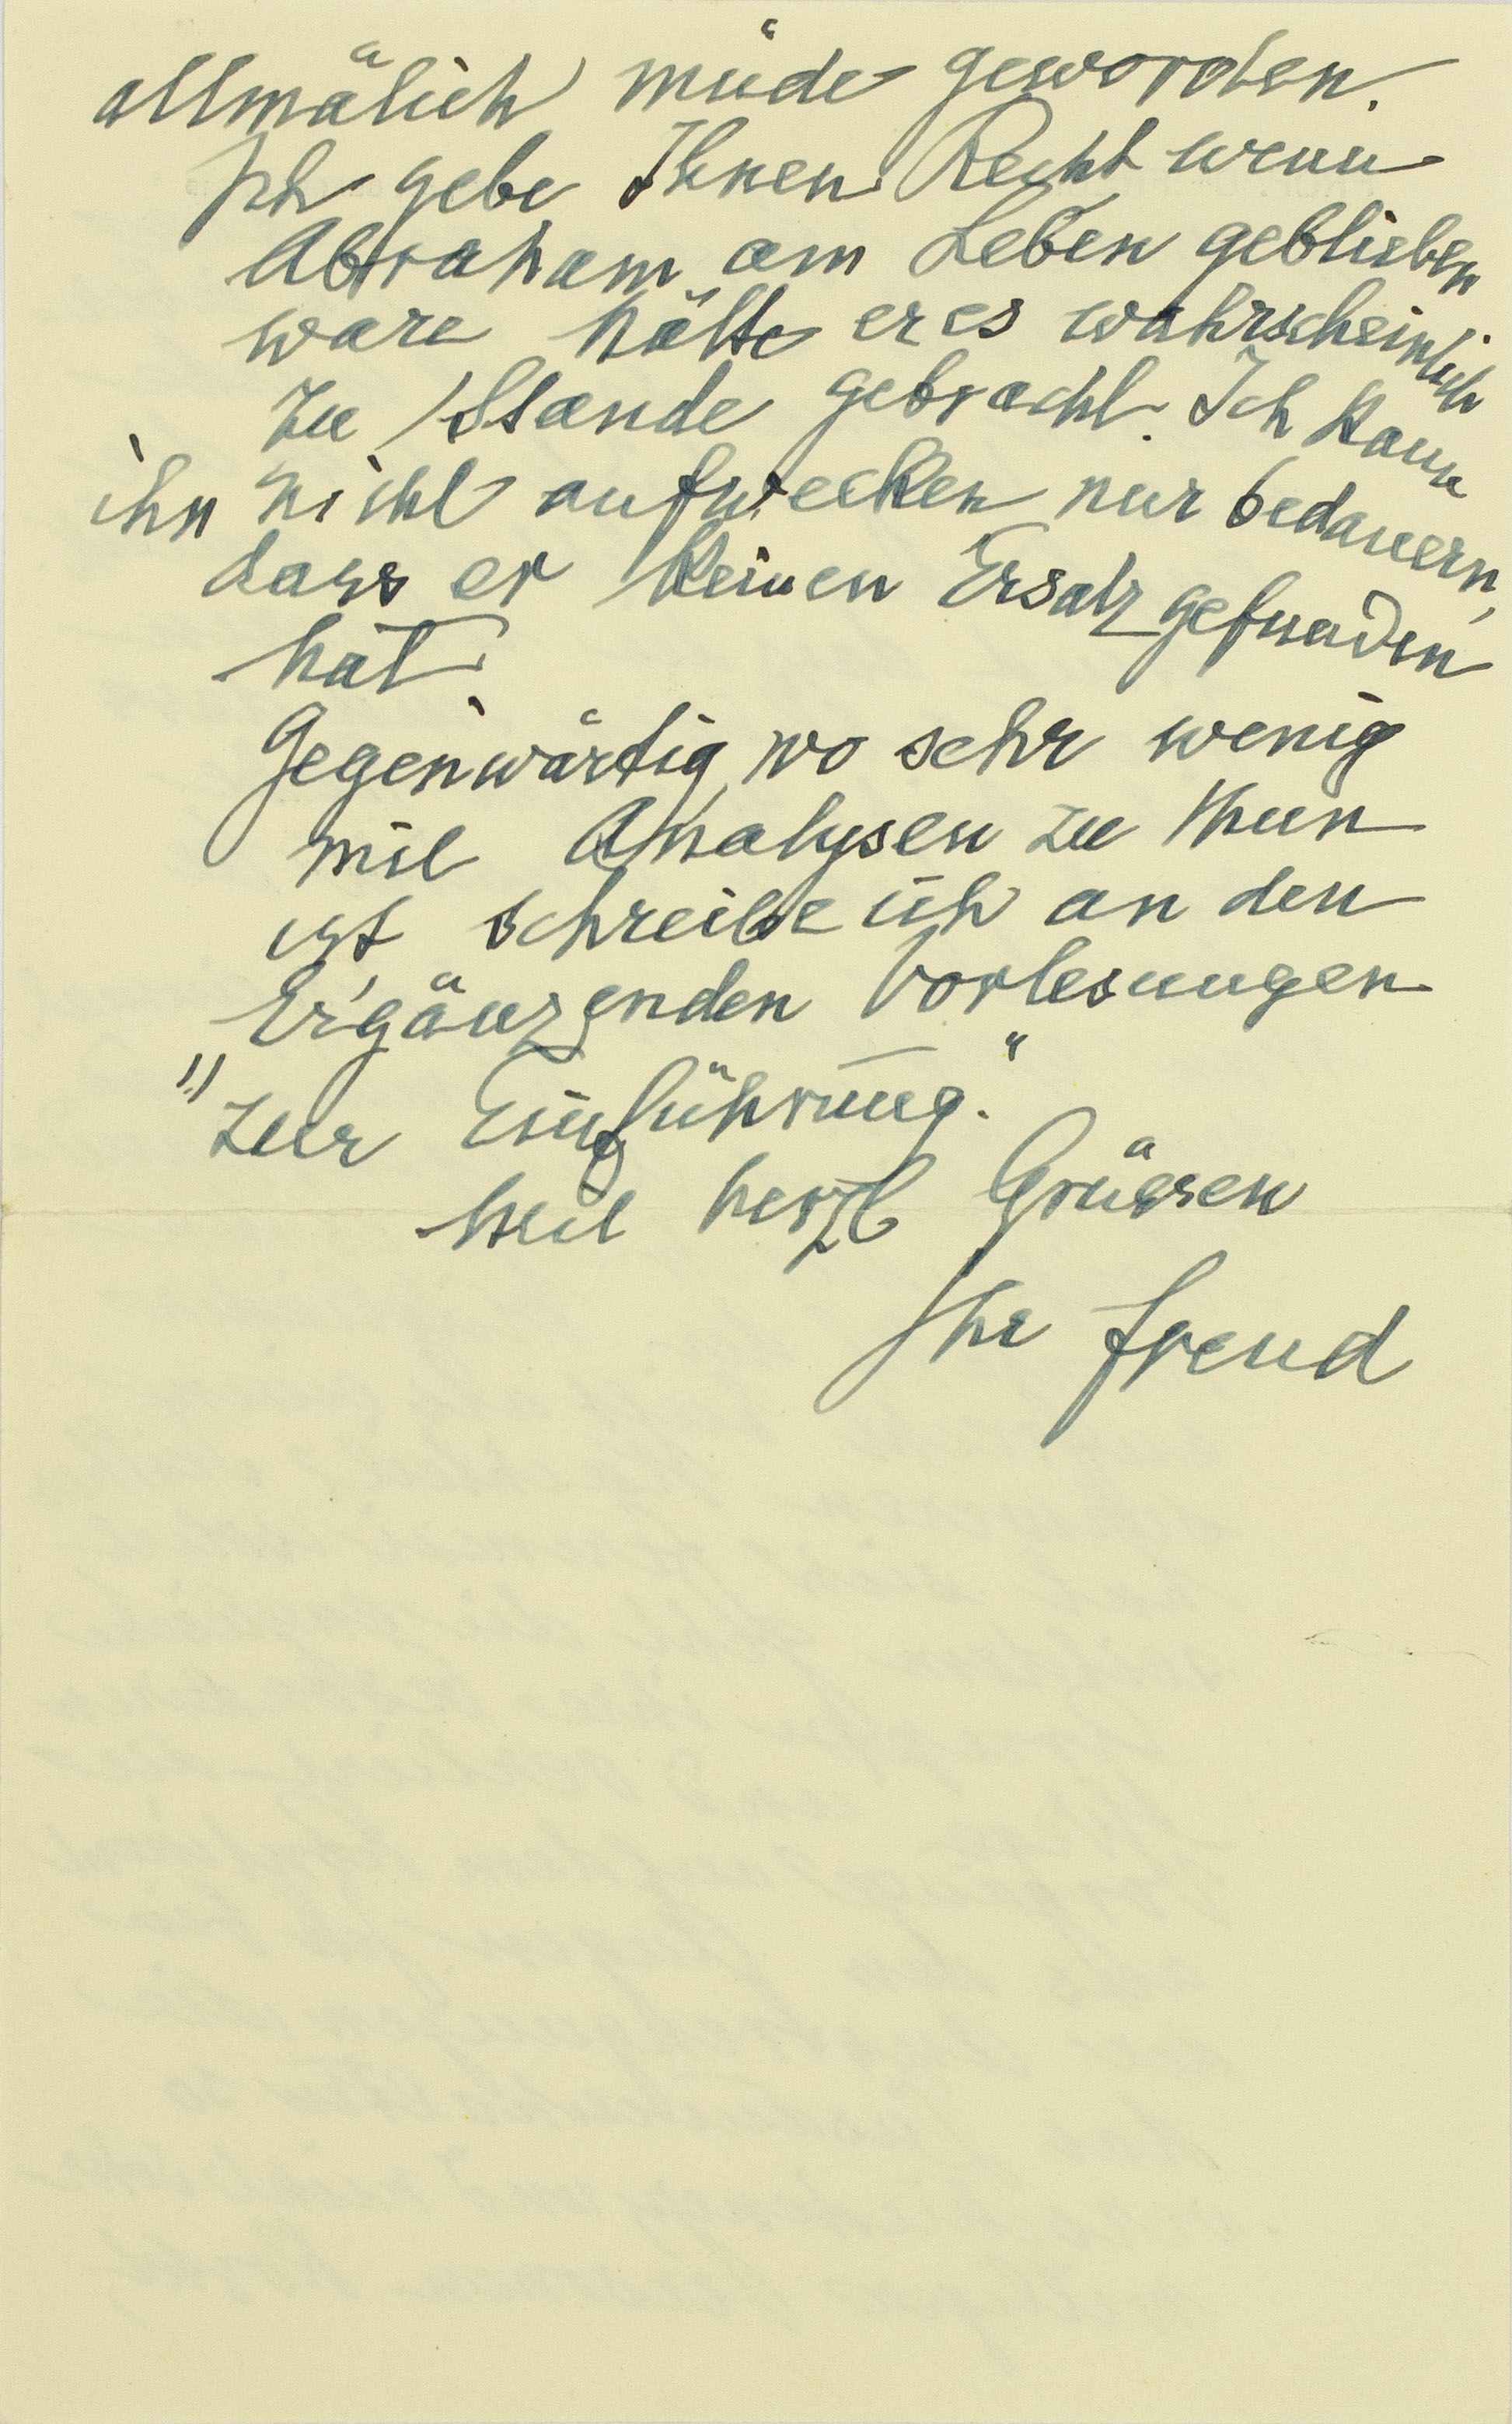 allmälich müde geworden.
Ich gebe Ihnen Recht wenn
Abraham am Leben geblieben
wäre hätte er es wahrscheinlich
zu Stande gebracht. Ich kann
ihn nicht aufwecken nur bedauern,
dass er keinen Ersatz gefunden
hat.
Gegenwärtig, wo sehr wenig
mit Analysen zu thun
ist schreibe ich an den
Ergänzenden Vorlesungen
"Zur Einführung."
Mit herzl Grüssen
Ihr Freud